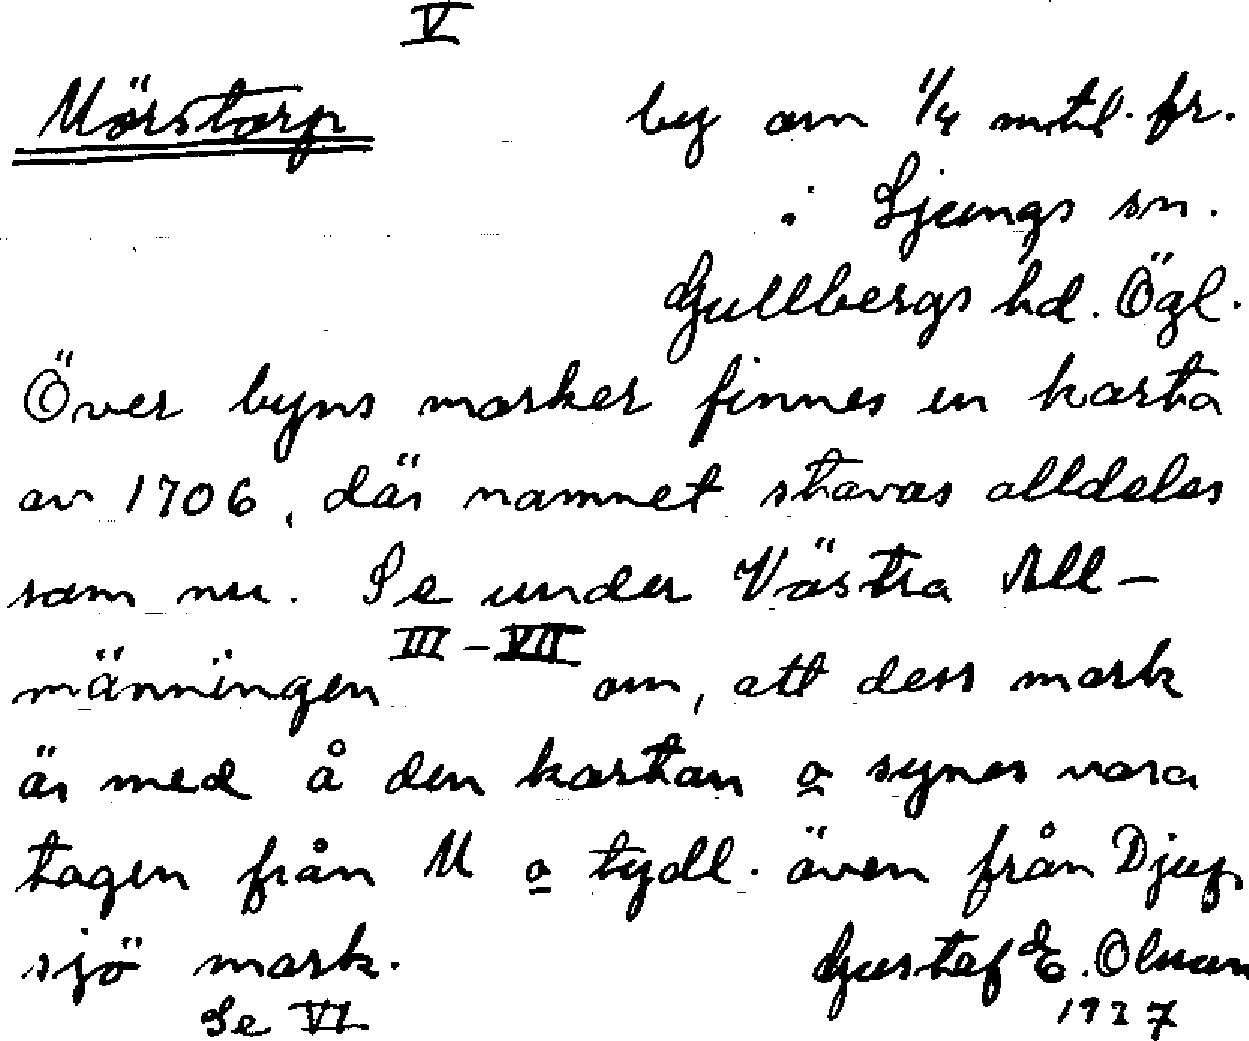 V
Mörstorp by om 1/4 mtl. fr.
i Ljungs sn.
Gullbergs hd. Ögl.
Över byns marker finnes en karta
av 1706, där namnet stavas alldeles
som nu. Se under Västra All-
männingen III-VII om, att dess mark
är med å den kartan o synes vara
tagen från M o tydl. även från Djup
sjö mark. Gustaf E. Olsson
Se VI 1927